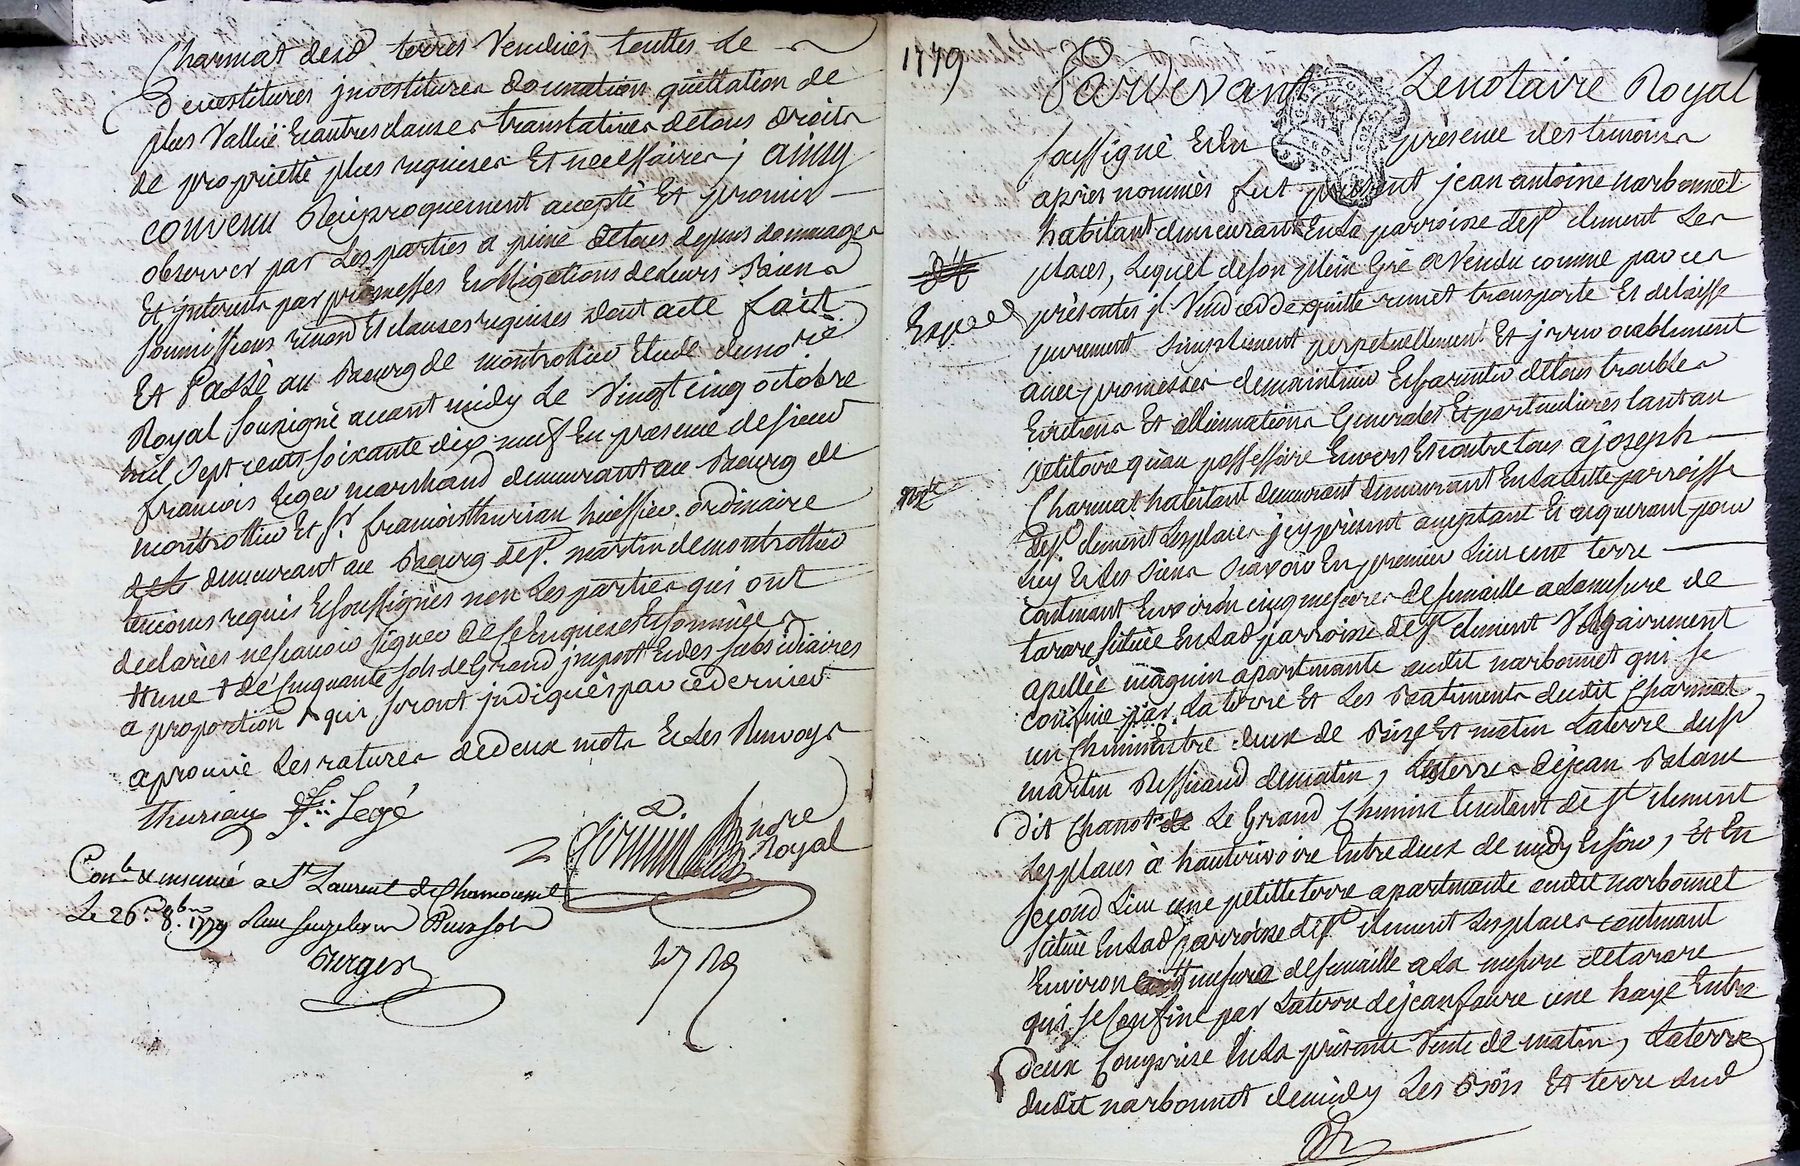 Charmat desd terres Vendües touttes de
devestitures jnvestitures donnation quittation de
plus Vallüe Et autres clauses translatives de tous droits
de proprietté plus requises Et necessaires ; ainsy
convenu Reciproquement accepté Et promis
observer par Les parties a peine de tous depens dommages
Et jnterests par promesses Et obligations de Leurs Biens
soumissions renond Et clauses requises dont acte fait
Et Passé au Bourg de montrottier Etude du nore
Royal sousigné avant midy Le Vingt cinq octobre
mil sept cents soixante dix neuf En presence de sieur
francois Leger marchand demeurant au Bourg de
montrottier Et sr. francois thurian huissier ordinaire
demeurant au Bourg de st. martin de montrottier
temoins requis Et soussignés non Les parties qui ont
declarées ne scavoir signer de ce Enquises Et sommées
#une + de Cinquante sols de Grand jmpost Et des subsidiaires
a proportion qui seront jndiqués par ce dernier
aprouvé Les ratures de deux mots Et Les Renvoys
thurian fs. Legé
nore
Royal
Conlé & insinué a St Laurent de Chamousset
Le 26e 8bre 1779 Reçu sept Livres Dix sols
Berger
1779
1779
Pardevant Le notaire Royal
soussigné Et En présence des temoins
après nommés fut présent jean antoine narbonnet
habitant demeurant En La parroisse de st clement Les
places, Lequel de son plein Gré a Vendu comme par ces
Exped
présentes jl Vend cedde quitte remet transporte Et delaisse
purement simplement perpetuellement Et jrrevocablement
avec promesses de maintenir Et Garentir de tous troubles
Evictions Et alliennations Generales Et particulieres tant au
petitoire qu'au possessoire Envers Et contre tous a joseph
Charmat habitant demeurant demeurant En La ditte parroisse
de st. clement Les places jcy présent acceptant Et acquerant pour
Luy Et Les siens scavoir En premier Lieu une terre
contenant Environ cinq mesures de semaille a La mesure de
tarare située En Lad parroisse de st clement Vulgairement
apellée maquin apartenante audit narbonnet qui se
confine par La terre Et Les Batiments dudit Charmat
un chemin Entre deux de Bize Et matin La terre du sr
martin Ressicaud de matin, Les terres de jean Blanc
dit Chanot Le Grand Chemin tendant de st clement
Les places à hauterivoire Entre deux de midy Et soir, Et En
second Lieu une petitte terre apartenante audit narbonnet
située En Lad parroisse de st clement Les places contenant
Environ mesure de semaille a La mesure de tarare
qui se Confine par La terre de jean faure une haye Entre
deux Comprise En La présente Vente de matin, La terre
dudit narbonnet de midy Les Bois Et terre dud